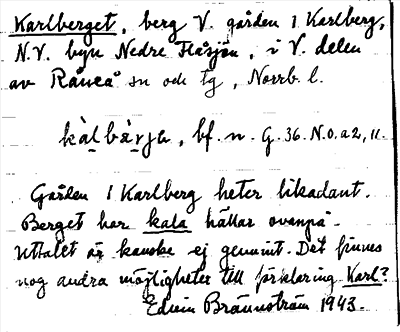 Karlberget, berg V. gården 1 Karlberg,
N.V. byn Nedre Flåsjön, i V. delen
av Råneå sn och tg, Norrb. l.
kàlbàrjə, bf. n. G. 36. N.O. a2, 11.
Gården 1 Karlberg heter likadant.
Berget har kala hällar ovanpå.
Uttalet är kanske ej genuint. Det finnes
nog andra möjligheter till förklaring Karl?
Edvin Brännström 1943.